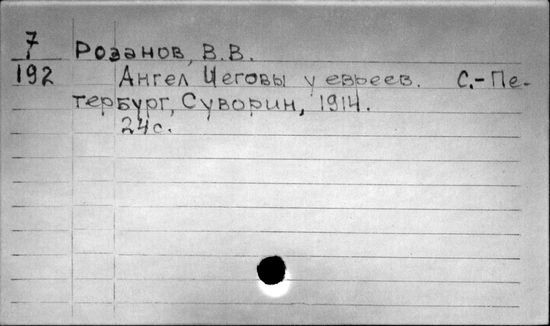 7
192
Розанов, В.В.
Ангел Иеговы у евреев. С.-Пе-
тербург, Суворин, 1914.
24с.